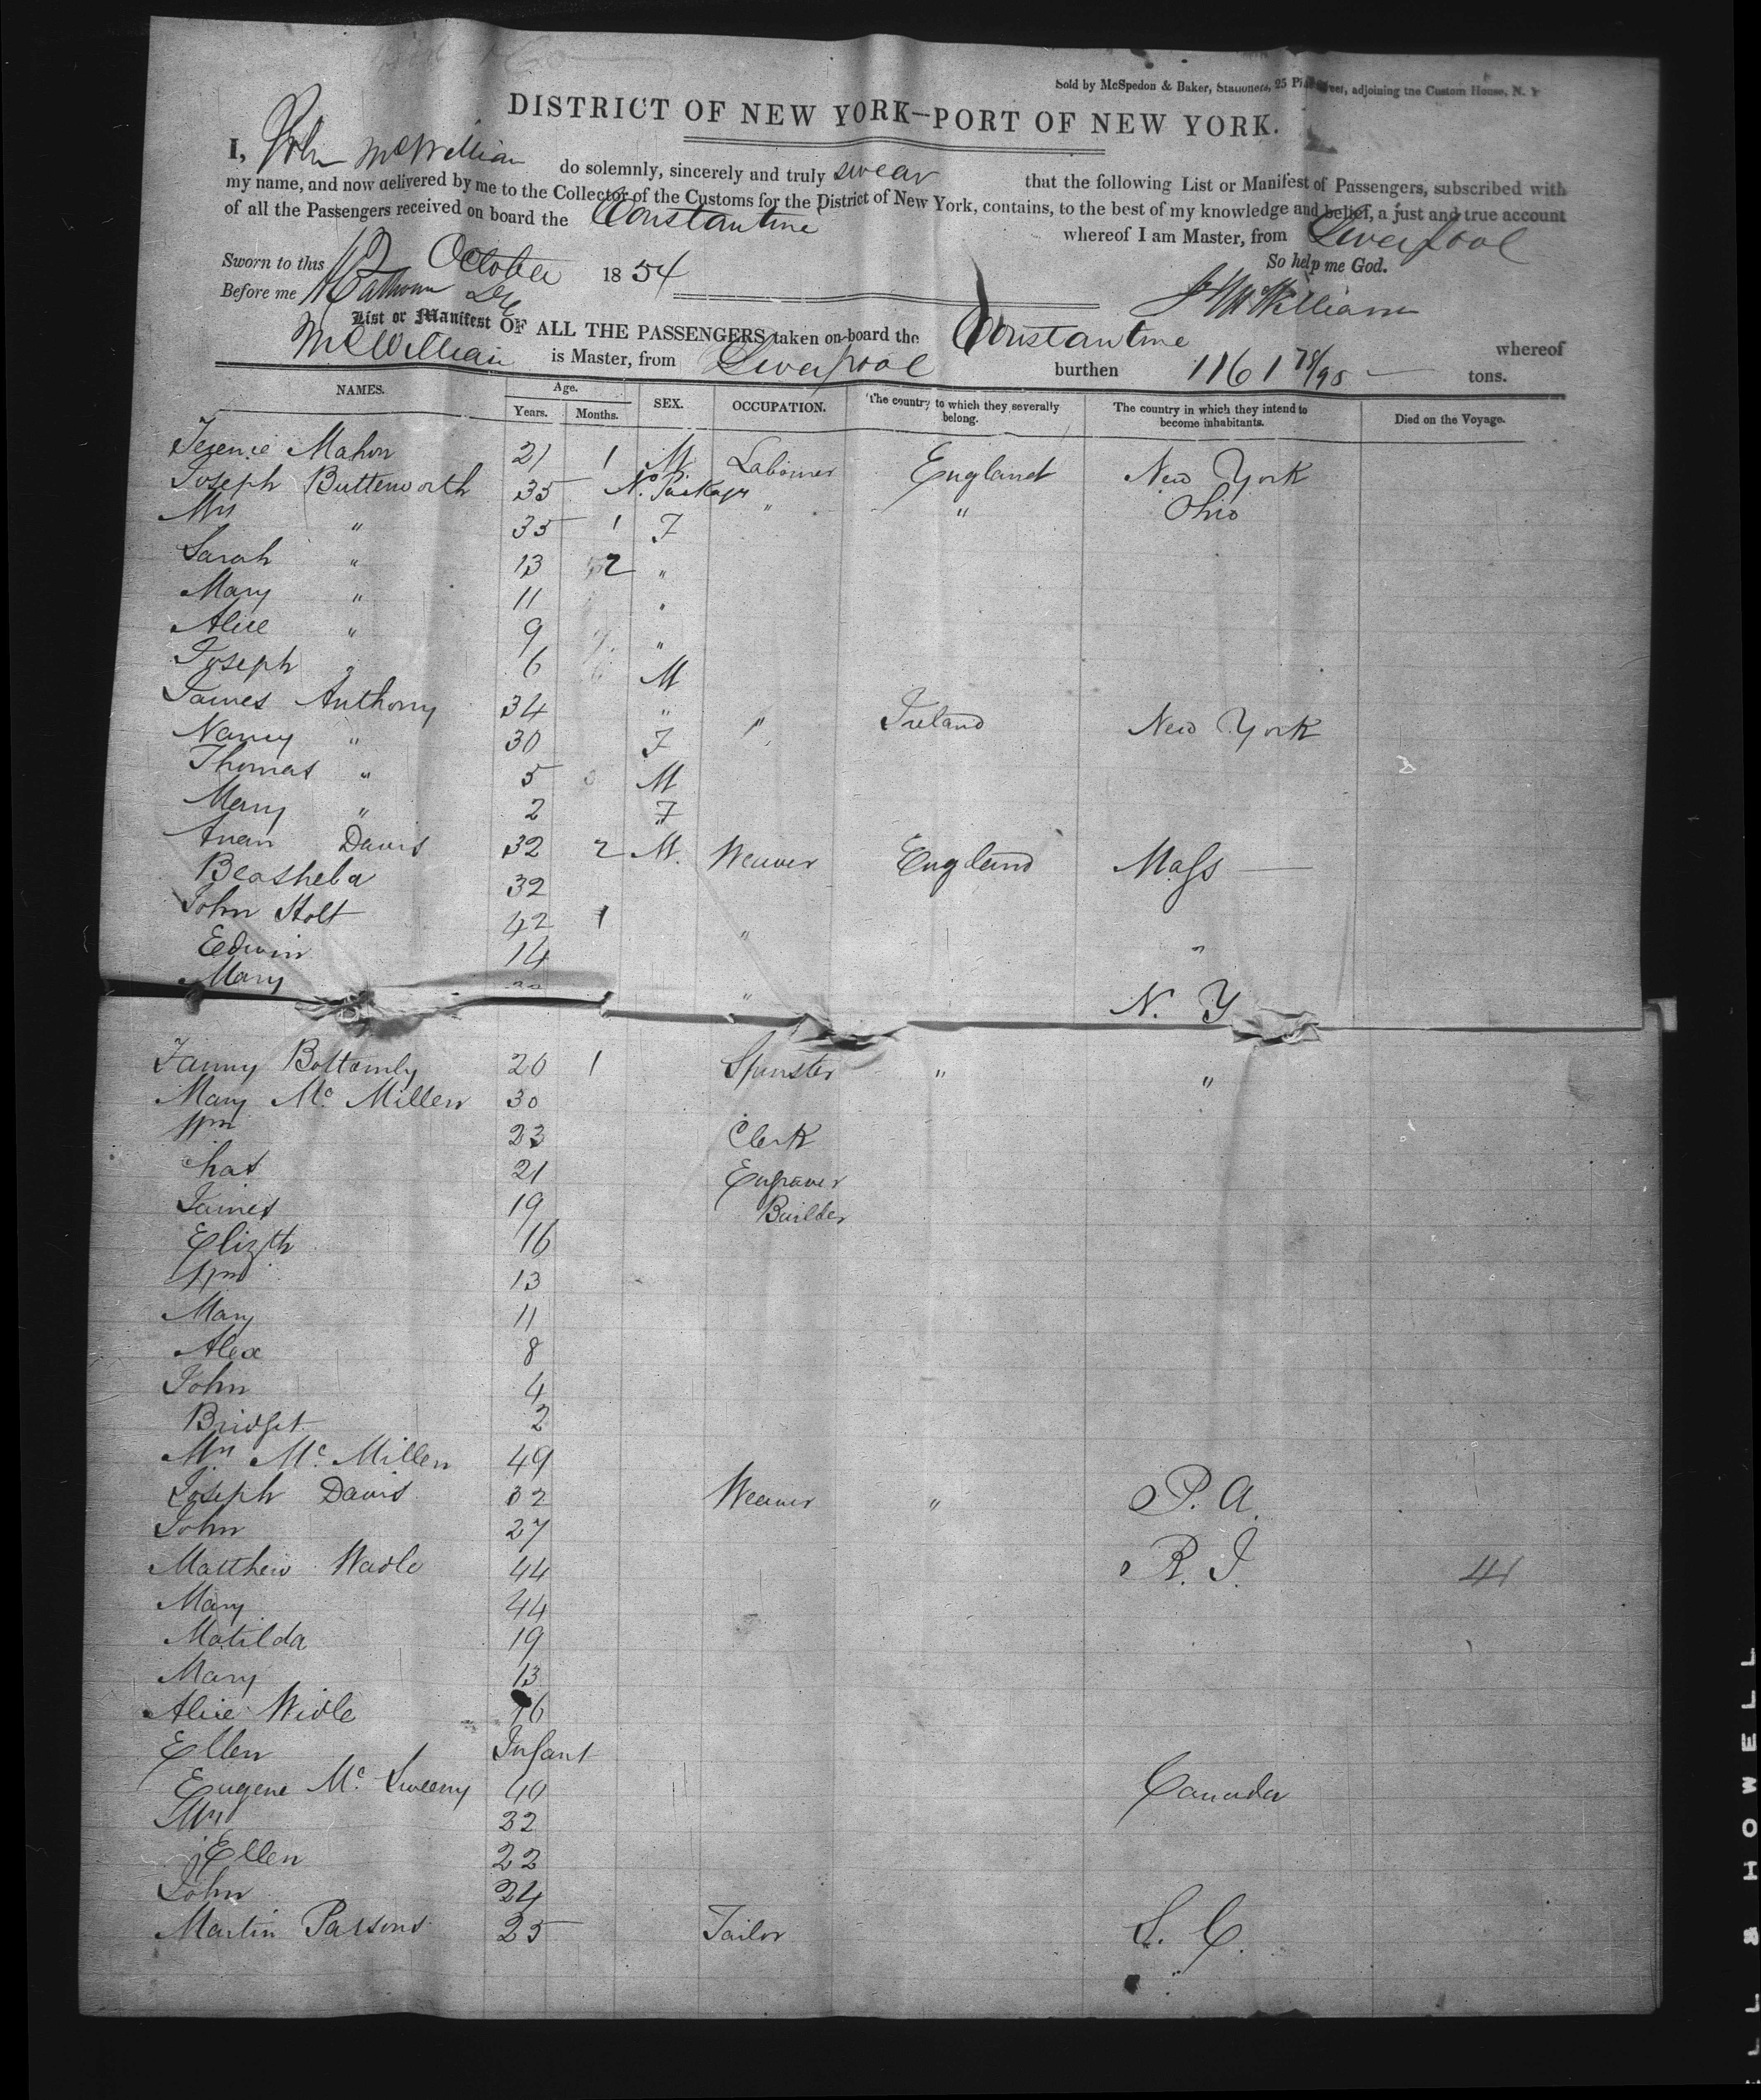 Sold by McSpedon & Baker, Stationers, 25 Pine Street, adjoining the Custom House, N. Y
DISTRICT OF NEW YORK—PORT OF NEW YORK.
I, John McWilliam do solemnly, sincerely and truly swear that the following List or Manifest of Passengers, subscribed with
my name, and now delivered by me to the Collector of the Customs for the District of New York, contains, to the best of my knowledge and belief, a just and true account
of all the Passengers received on board the Constantine whereof I am Master, from Liverpool
So help me God.
Sworn to this October 1854
Before me
List or Manifest OF ALL THE PASSENGERS taken on board the Constantine whereof
McWilliam is Master, from Liverpool burthen 1161 78/95 tons.
NAMES. Age. SEX. OCCUPATION. The country to which they severally belong. The country in which they intend to become inhabitants. Died on the Voyage.
Years. Months.
Terence Mahon 21 1 M Labourer England New York
Joseph Butterworth 35 No. Packages " " Ohio
Mrs " 35 1 F
Sarah " 13 2 "
Mary " 11 "
Alice " 9 "
Joseph " 6 M
James Anthony 34 " " Ireland New York
Nancy " 30 F
Thomas " 5 M
Mary " 2 F
Davis 32 2 M. Weaver England Mass
32
John Holt 42 1 "
Edwin 14 "
Mary " N. Y
Fanny Bottomly 20 1 Spinster " "
Mary Mc Millen 30
Wm 23 Clerk
Chas 21 Engraver
James 19 Builder
Elizth 16
Wm 13
Mary 11
Alex 8
John 4
Bridget 2
Mrs Mc Millen 49
Joseph Davis 32 Weaver " P. A.
John 27
Matthew Wadle 44 R. I. 41
Mary 44
Matilda 19
Mary 13
Alice Widle 16
Ellen Infant
Eugene Mc Sweeny 40 Canada
Mrs 32
Ellen 22
John 24
Martin Parsons 25 Tailor S. C.
LL & HOWELL